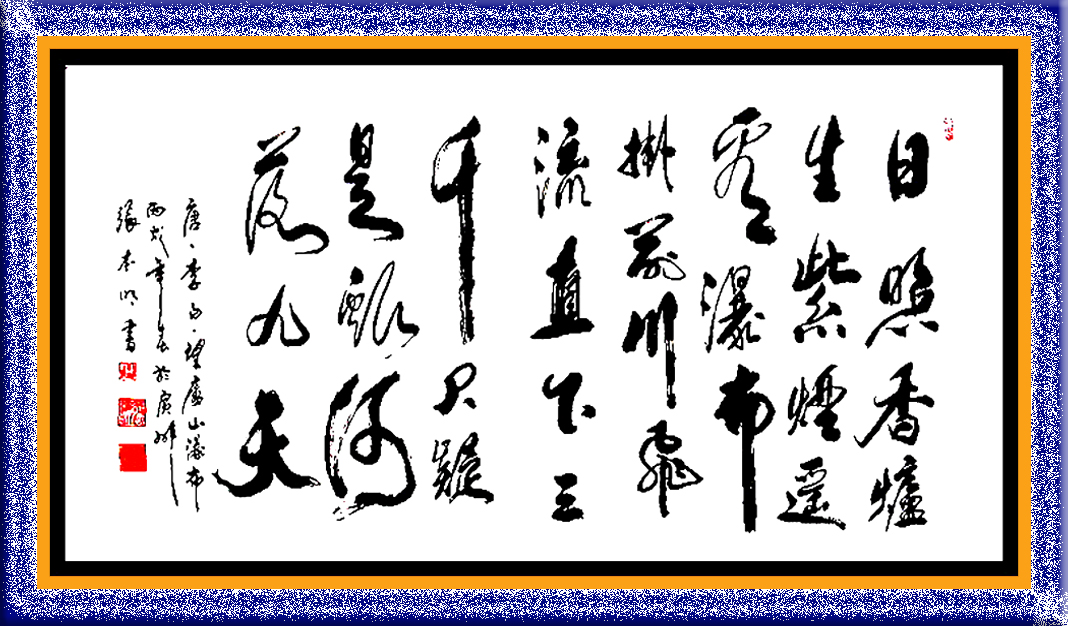 日照香爐
生紫煙遥
看瀑布
掛前川飛
流直下三
千尺疑
是銀河
落九天
唐、李白、望廬山瀑布
丙戌年春於廣州
張本明書